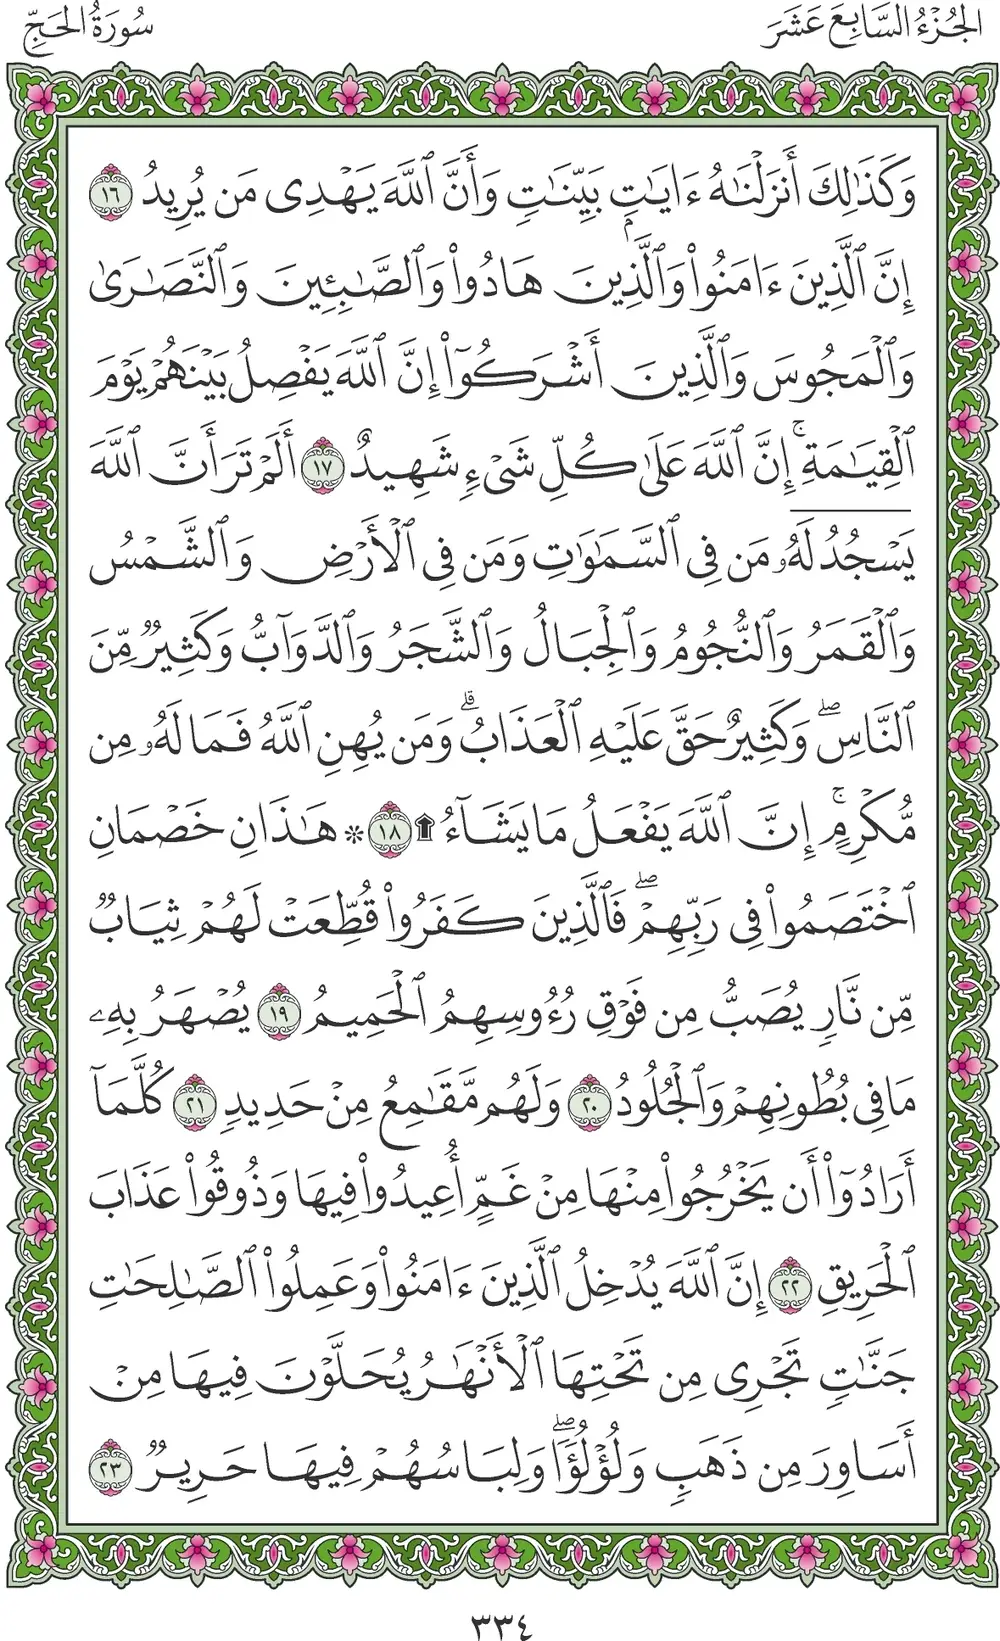 الجُزْءُ السَّابِعَ عَشَرَ
سُورَةُ الحَجِّ
وَكَذَٰلِكَ أَنزَلْنَٰهُ ءَايَٰتٍۭ بَيِّنَٰتٍ وَأَنَّ ٱللَّهَ يَهْدِى مَن يُرِيدُ ١٦
إِنَّ ٱلَّذِينَ ءَامَنُوا۟ وَٱلَّذِينَ هَادُوا۟ وَٱلصَّٰبِـِٔينَ وَٱلنَّصَٰرَىٰ
وَٱلْمَجُوسَ وَٱلَّذِينَ أَشْرَكُوٓا۟ إِنَّ ٱللَّهَ يَفْصِلُ بَيْنَهُمْ يَوْمَ
ٱلْقِيَٰمَةِ ۚ إِنَّ ٱللَّهَ عَلَىٰ كُلِّ شَىْءٍ شَهِيدٌ ١٧ أَلَمْ تَرَ أَنَّ ٱللَّهَ
يَسْجُدُ لَهُۥ مَن فِى ٱلسَّمَٰوَٰتِ وَمَن فِى ٱلْأَرْضِ وَٱلشَّمْسُ
وَٱلْقَمَرُ وَٱلنُّجُومُ وَٱلْجِبَالُ وَٱلشَّجَرُ وَٱلدَّوَآبُّ وَكَثِيرٌ مِّنَ
ٱلنَّاسِ ۖ وَكَثِيرٌ حَقَّ عَلَيْهِ ٱلْعَذَابُ ۗ وَمَن يُهِنِ ٱللَّهُ فَمَا لَهُۥ مِن
مُّكْرِمٍ ۚ إِنَّ ٱللَّهَ يَفْعَلُ مَا يَشَآءُ ۩ ١٨ ۞ هَٰذَانِ خَصْمَانِ
ٱخْتَصَمُوا۟ فِى رَبِّهِمْ ۖ فَٱلَّذِينَ كَفَرُوا۟ قُطِّعَتْ لَهُمْ ثِيَابٌ
مِّن نَّارٍ يُصَبُّ مِن فَوْقِ رُءُوسِهِمُ ٱلْحَمِيمُ ١٩ يُصْهَرُ بِهِۦ
مَا فِى بُطُونِهِمْ وَٱلْجُلُودُ ٢٠ وَلَهُم مَّقَٰمِعُ مِنْ حَدِيدٍ ٢١ كُلَّمَآ
أَرَادُوٓا۟ أَن يَخْرُجُوا۟ مِنْهَا مِنْ غَمٍّ أُعِيدُوا۟ فِيهَا وَذُوقُوا۟ عَذَابَ
ٱلْحَرِيقِ ٢٢ إِنَّ ٱللَّهَ يُدْخِلُ ٱلَّذِينَ ءَامَنُوا۟ وَعَمِلُوا۟ ٱلصَّٰلِحَٰتِ
جَنَّٰتٍ تَجْرِى مِن تَحْتِهَا ٱلْأَنْهَٰرُ يُحَلَّوْنَ فِيهَا مِنْ
أَسَاوِرَ مِن ذَهَبٍ وَلُؤْلُؤًا ۖ وَلِبَاسُهُمْ فِيهَا حَرِيرٌ ٢٣
٣٣٤